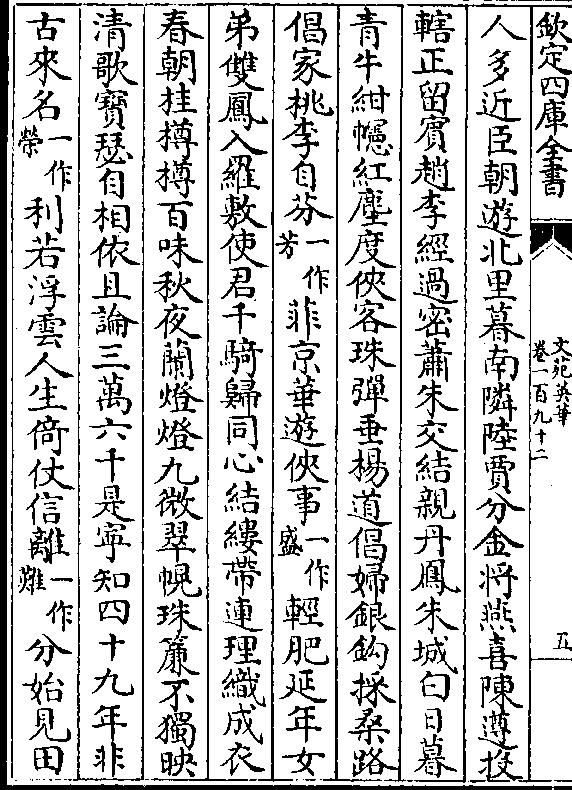 欽定四庫全書
文苑英華
卷一百九十二
五
人多近臣朝遊北里暮南隣陸賈分金將燕喜陳遵投
轄正留賓趙李經過密蕭朱交結親丹鳳朱城白日暮
青牛紺幰紅塵度俠客珠彈垂楊道倡婦銀鈎採桑路
倡家桃李自芬一作芳菲京華遊俠事一作盛輕肥延年女
弟雙鳳入羅敷使君千騎歸同心結縷帶連理織成衣
春朝桂樽樽百味秋夜蘭燈燈九微翠幌珠簾不獨映
清歌寶瑟自相依且論三萬六千是寧知四十九年非
古來名一作榮利若浮雲人生倚仗信離一作難分始見田